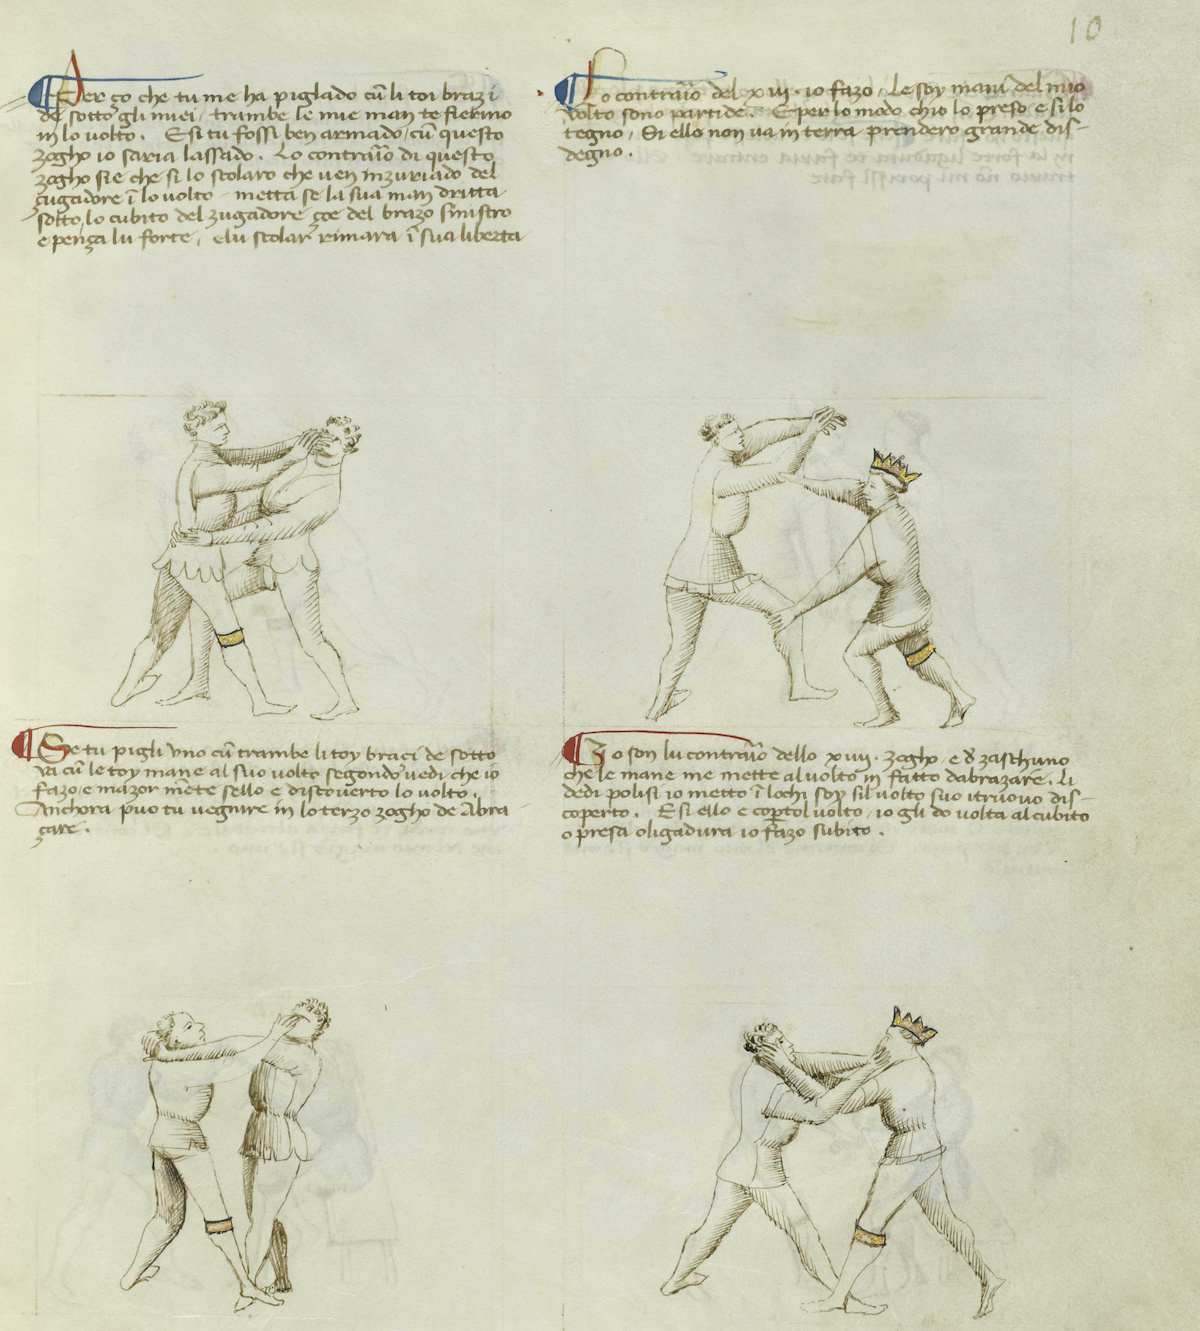 10
Per ço che tu me ha piglado cũ li toi brazi
de sotto gli miei, trambe le mie man te fierino
in lo volto. E si tu fossi ben armado, cũ questo
zogho io saria lassado. Lo contraĩo di questo
zogho sie che si lo scolaro che ven inzuriado del
çugadore ĩ lo volto, metta se la sua man dritta
sotto lo cubito del zugadore çoe del brazo sinistro
e penza lu forte, e lu scolar rimara ĩ sua liberta
Lo contraĩo del xiij. io fazo. Le soy mani del mio
volto sono partide. E per lo modo chio lo preso e si lo
tegno, Si ello non va in terra prendero grande dis-
degno.
Se tu pigli uno cũ trambe li toy braci de sotto
va cũ le toy mane al suo volto segondo vedi che io
fazo e mazor mẽte sello e discoverto lo volto.
Anchora poĩ tu vegnire in lo terzo zogho de Abra
çare.
Io son lu contraĩo dello xiiij. zogho e d zaschuno
che le mane me mette al volto in fatto dabrazare. Li
dedi polisi io metto ĩ lochi soy sil volto suo itruovo dis-
coperto. E si ello e coptol volto, io gli do volta al cubito
o presa o ligadura io fazo subito.